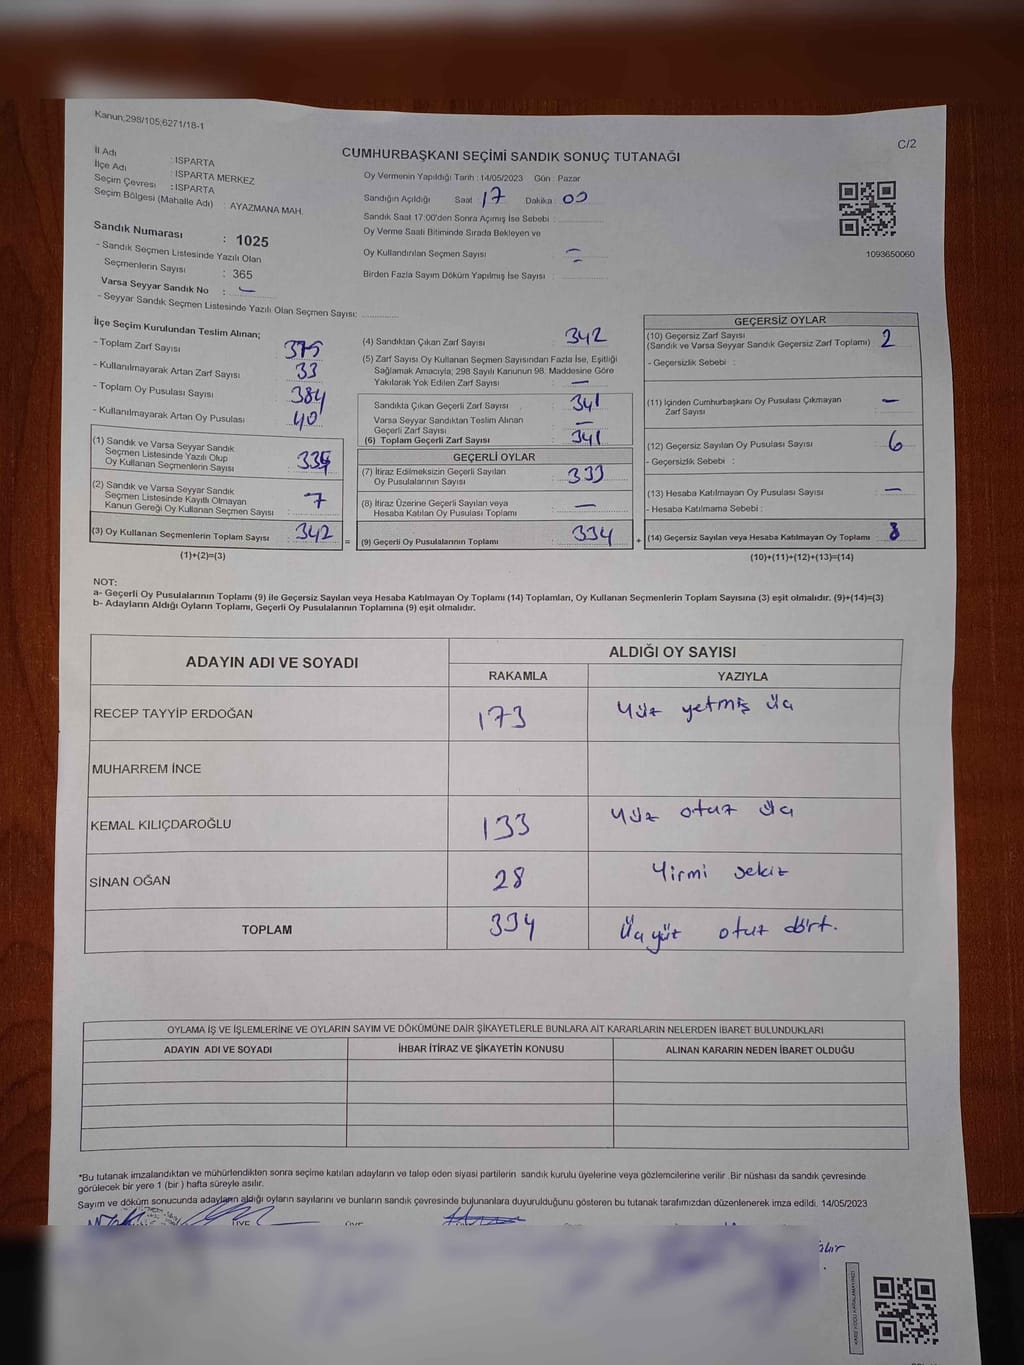 Kanun;298/105;6271/18-1
C/2
CUMHURBAŞKANI SEÇİMİ SANDIK SONUÇ TUTANAĞI
İl Adı : ISPARTA
İlçe Adı : ISPARTA MERKEZ
Seçim Çevresi : ISPARTA
Seçim Bölgesi (Mahalle Adı) : AYAZMANA MAH.
Sandık Numarası : 1025
- Sandık Seçmen Listesinde Yazılı Olan
Seçmenlerin Sayısı : 365
Varsa Seyyar Sandık No : —
- Seyyar Sandık Seçmen Listesinde Yazılı Olan Seçmen Sayısı:
Oy Vermenin Yapıldığı Tarih : 14/05/2023 Gün : Pazar
Sandığın Açıldığı Saat 17 Dakika : 00
Sandık Saat 17:00'den Sonra Açımış İse Sebebi :
Oy Verme Saati Bitiminde Sırada Bekleyen ve
Oy Kullandırılan Seçmen Sayısı :
Birden Fazla Sayım Döküm Yapılmış İse Sayısı :
1093650060
İlçe Seçim Kurulundan Teslim Alınan;
- Toplam Zarf Sayısı : 375
- Kullanılmayarak Artan Zarf Sayısı : 33
- Toplam Oy Pusulası Sayısı : 384
- Kullanılmayarak Artan Oy Pusulası : 40
(1) Sandık ve Varsa Seyyar Sandık
Seçmen Listesinde Yazılı Olup
Oy Kullanan Seçmenlerin Sayısı : 335
(2) Sandık ve Varsa Seyyar Sandık
Seçmen Listesinde Kayıtlı Olmayan
Kanun Gereği Oy Kullanan Seçmen Sayısı : 7
(3) Oy Kullanan Seçmenlerin Toplam Sayısı : 342
(1)+(2)=(3)
(4) Sandıktan Çıkan Zarf Sayısı : 342
(5) Zarf Sayısı Oy Kullanan Seçmen Sayısından Fazla İse, Eşitliği
Sağlamak Amacıyla, 298 Sayılı Kanunun 98. Maddesine Göre
Yakılarak Yok Edilen Zarf Sayısı : —
Sandıkta Çıkan Geçerli Zarf Sayısı : 341
Varsa Seyyar Sandıktan Teslim Alınan
Geçerli Zarf Sayısı : —
(6) Toplam Geçerli Zarf Sayısı : 341
GEÇERLİ OYLAR
(7) İtiraz Edilmeksizin Geçerli Sayılan
Oy Pusulalarının Sayısı : 333
(8) İtiraz Üzerine Geçerli Sayılan veya
Hesaba Katılan Oy Pusulası Toplamı : —
= (9) Geçerli Oy Pusulalarının Toplamı : 334
GEÇERSİZ OYLAR
(10) Geçersiz Zarf Sayısı
(Sandık ve Varsa Seyyar Sandık Geçersiz Zarf Toplamı) : 2
- Geçersizlik Sebebi :
(11) İçinden Cumhurbaşkanı Oy Pusulası Çıkmayan
Zarf Sayısı : —
(12) Geçersiz Sayılan Oy Pusulası Sayısı : 6
- Geçersizlik Sebebi :
(13) Hesaba Katılmayan Oy Pusulası Sayısı : —
- Hesaba Katılmama Sebebi :
+ (14) Geçersiz Sayılan veya Hesaba Katılmayan Oy Toplamı : 8
(10)+(11)+(12)+(13)=(14)
NOT:
a- Geçerli Oy Pusulalarının Toplamı (9) ile Geçersiz Sayılan veya Hesaba Katılmayan Oy Toplamı (14) Toplamları, Oy Kullanan Seçmenlerin Toplam Sayısına (3) eşit olmalıdır. (9)+(14)=(3)
b- Adayların Aldığı Oyların Toplamı, Geçerli Oy Pusulalarının Toplamına (9) eşit olmalıdır.
ADAYIN ADI VE SOYADI
ALDIĞI OY SAYISI
RAKAMLA YAZIYLA
RECEP TAYYİP ERDOĞAN 173 Yüz yetmiş üç
MUHARREM İNCE
KEMAL KILIÇDAROĞLU 133 Yüz otuz üç
SİNAN OĞAN 28 Yirmi sekiz
TOPLAM 334 Üçyüz otuz dört.
OYLAMA İŞ VE İŞLEMLERİNE VE OYLARIN SAYIM VE DÖKÜMÜNE DAİR ŞİKAYETLERLE BUNLARA AİT KARARLARIN NELERDEN İBARET BULUNDUKLARI
ADAYIN ADI VE SOYADI İHBAR İTİRAZ VE ŞİKAYETİN KONUSU ALINAN KARARIN NEDEN İBARET OLDUĞU
*Bu tutanak imzalandıktan ve mühürlendikten sonra seçime katılan adayların ve talep eden siyasi partilerin sandık kurulu üyelerine veya gözlemcilerine verilir. Bir nüshası da sandık çevresinde
görülecek bir yere 1 (bir ) hafta süreyle asılır.
Sayım ve döküm sonucunda adayların aldığı oyların sayılarını ve bunların sandık çevresinde bulunanlara duyurulduğunu gösteren bu tutanak tarafımızdan düzenlenerek imza edildi. 14/05/2023